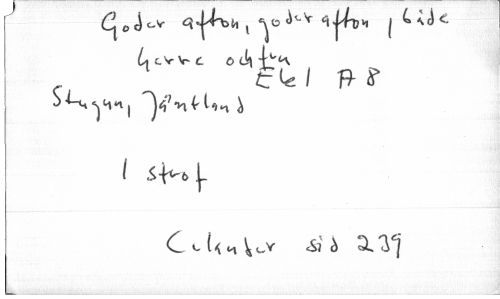 Goder afton, goder afton, både
herre och fru
Ek 1 A 8
Stugun, Jämtland
1 strof
Celander sid 239